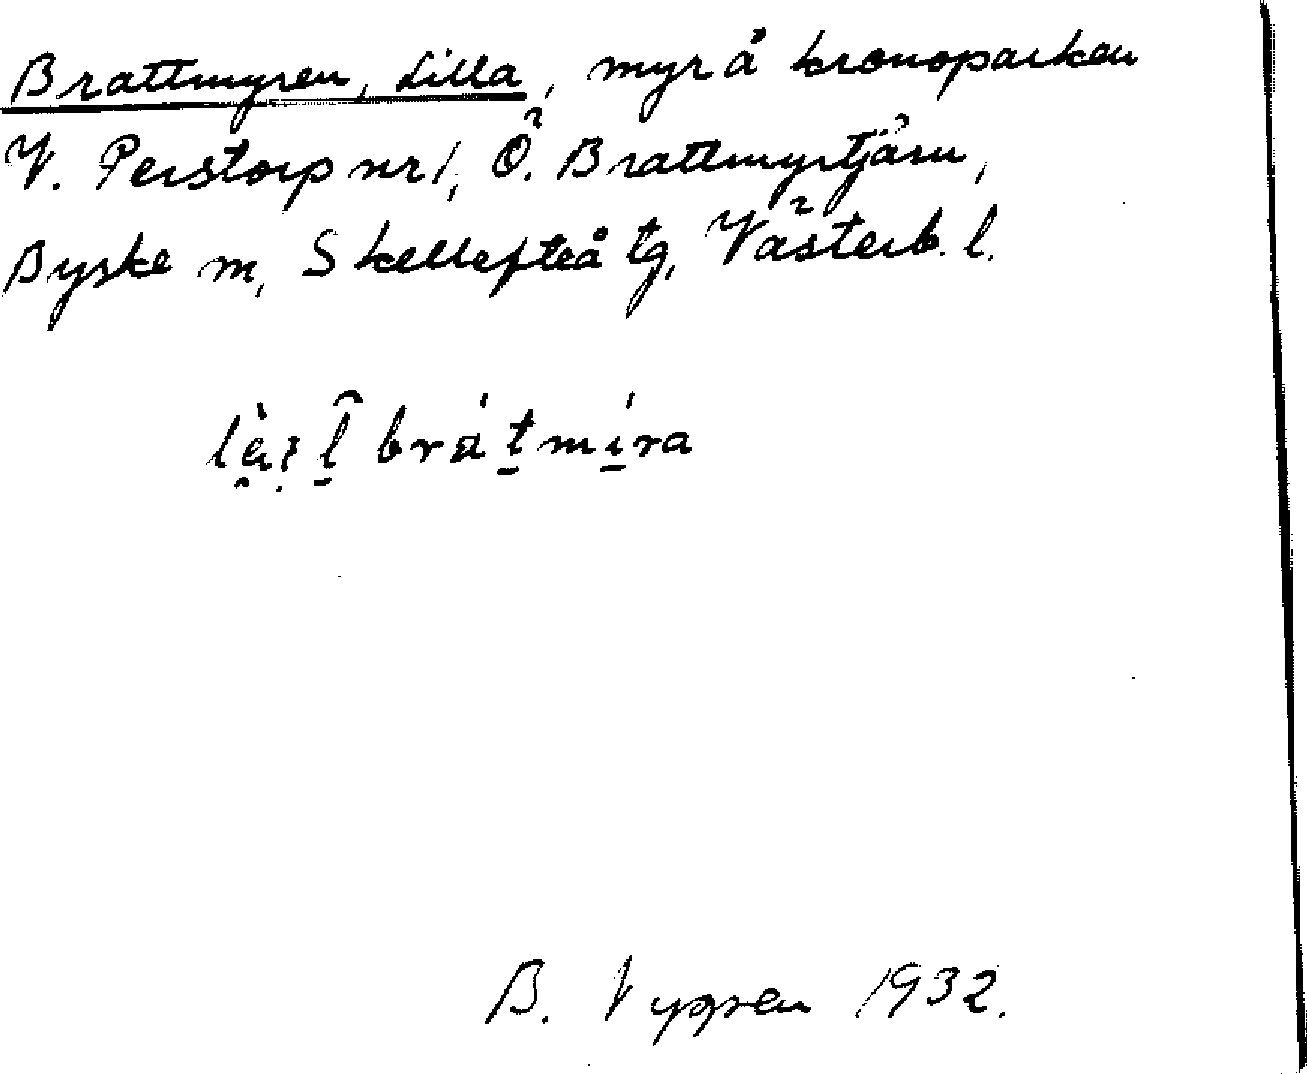 Brattmyren, Lilla, myr å kronoparken
V. Perstorp nr 1, Ö. Brattmyrtjärn,
Byske sn, Skellefteå tg, Västerb. l.
brátmíra
B. Vygren 1932.